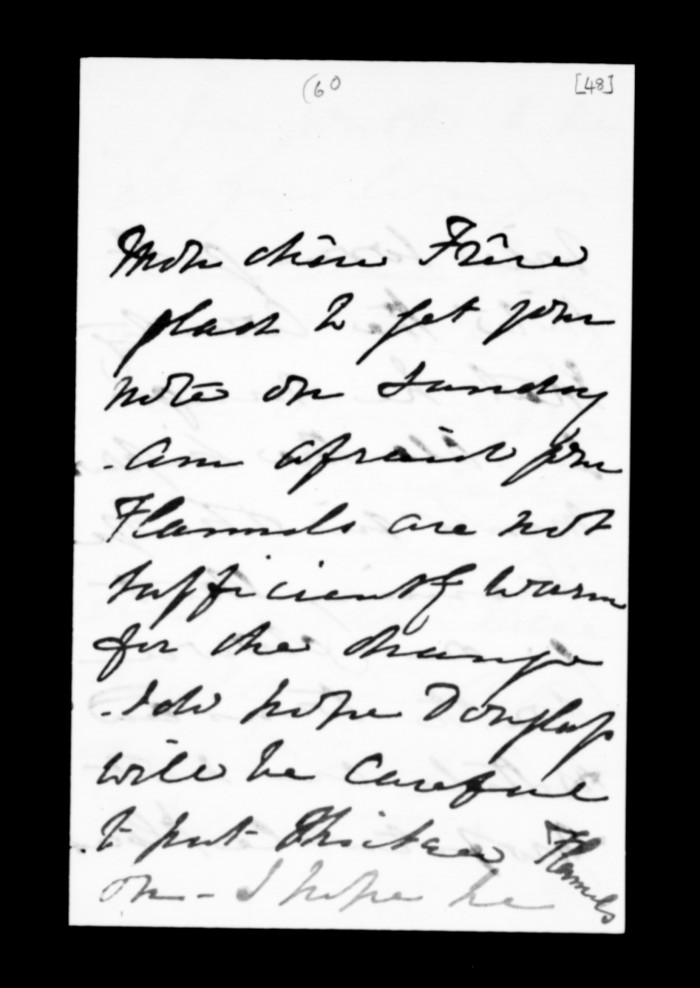 (60
[48]
Mon chère Frère
glad to get your
note on Sunday
- am afraid your
Flannels are not
sufficiently warm
for the change
- I do hope Douglas
will be careful
to put thicker Flannels
on - I hope he